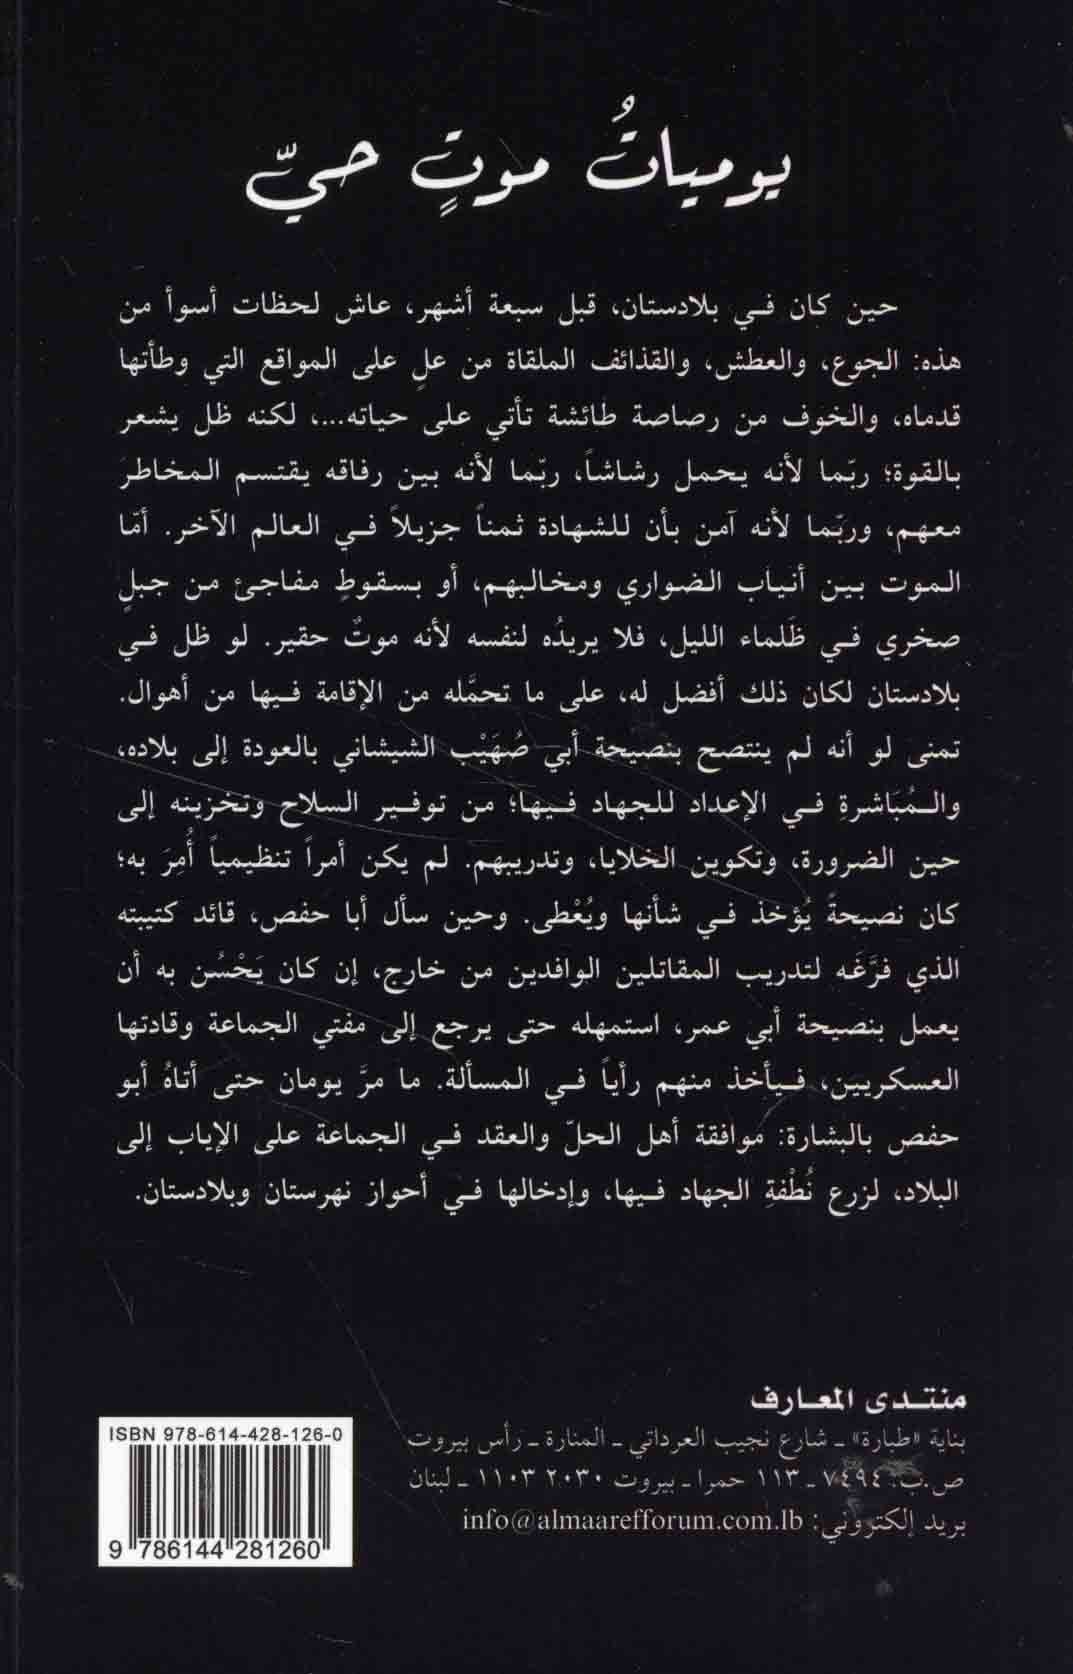 يومياتُ موتٍ حيّ
حين كان في بلادستان، قبل سبعة أشهر، عاش لحظات أسوأ من
هذه: الجوع، والعطش، والقذائف الملقاة من علٍ على المواقع التي وطأتها
قدماه، والخوف من رصاصة طائشة تأتي على حياته...، لكنه ظل يشعر
بالقوة؛ ربّما لأنه يحمل رشاشاً، ربّما لأنه بين رفاقه يقتسم المخاطرَ
معهم، وربّما لأنه آمن بأن للشهادة ثمناً جزيلاً في العالم الآخر. أمّا
الموت بين أنياب الضواري ومخالبهم، أو بسقوطٍ مفاجئ من جبلٍ
صخري في ظَلماء الليل، فلا يريدُه لنفسه لأنه موتٌ حقير. لو ظل في
بلادستان لكان ذلك أفضل له، على ما تحمَّله من الإقامة فيها من أهوال.
تمنى لو أنه لم ينتصح بنصيحة أبي صُهَيْب الشيشاني بالعودة إلى بلاده،
والمُبَاشرةِ في الإعداد للجهاد فيها؛ من توفير السلاح وتخزينه إلى
حين الضرورة، وتكوين الخلايا، وتدريبهم. لم يكن أمراً تنظيمياً أُمِرَ به؛
كان نصيحةً يُؤخذ في شأنها ويُعْطى. وحين سأل أبا حفص، قائد كتيبته
الذي فرَّغَه لتدريب المقاتلين الوافدين من خارج، إن كان يَحْسُن به أن
يعمل بنصيحة أبي عمر، استمهله حتى يرجع إلى مفتي الجماعة وقادتها
العسكريين، فيأخذ منهم رأياً في المسألة. ما مرَّ يومان حتى أتاهُ أبو
حفص بالبشارة: موافقة أهل الحلّ والعقد في الجماعة على الإياب إلى
البلاد، لزرع نُطْفةِ الجهاد فيها، وإدخالها في أحواز نهرستان وبلادستان.
منتدى المعارف
بناية «طبارة» - شارع نجيب العرداتي - المنارة - رأس بيروت
ص.ب: ٧٤٩٤ - ١١٣ حمرا - بيروت ٢٠٣٠ ١١٠٣ - لبنان
بريد إلكتروني: info@almaarefforum.com.lb
ISBN 978-614-428-126-0
9 786144 281260